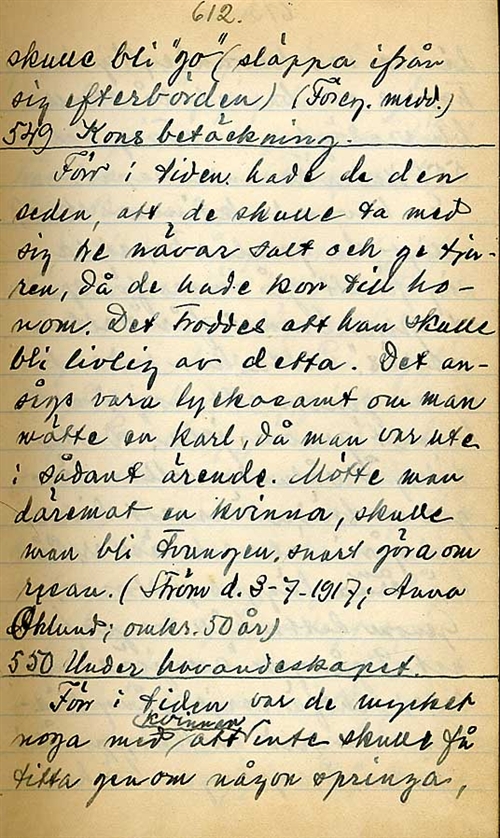 612.
skulle bli "go" (släppa ifrån
sig efterbörden) (Föreg. medd.)
549 Kons betäckning.
Förr i tiden hade de den
seden, att de skulle ta med
sig tre nävar salt och ge tju-
ren, då de hade kon till ho-
nom. Det troddes att han skulle
bli livlig av detta. Det an-
sågs vara lyckosamt om man
mötte en karl, då man var ute
i sådant ärende. Mötte man
däremot en kvinna, skulle
man bli tvungen snart göra om
resan. (Ström d. 3-7-1917; Anna
Öhlund; omkr. 50 år)
550 Under havandeskapet.
Förr i tiden var de mycket
noga med att kvinnan inte skulle få
titta genom någon springa,